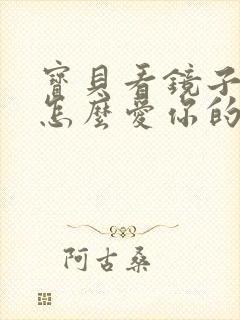 寶貝看鏡子
怎麼愛你的
阿古桑